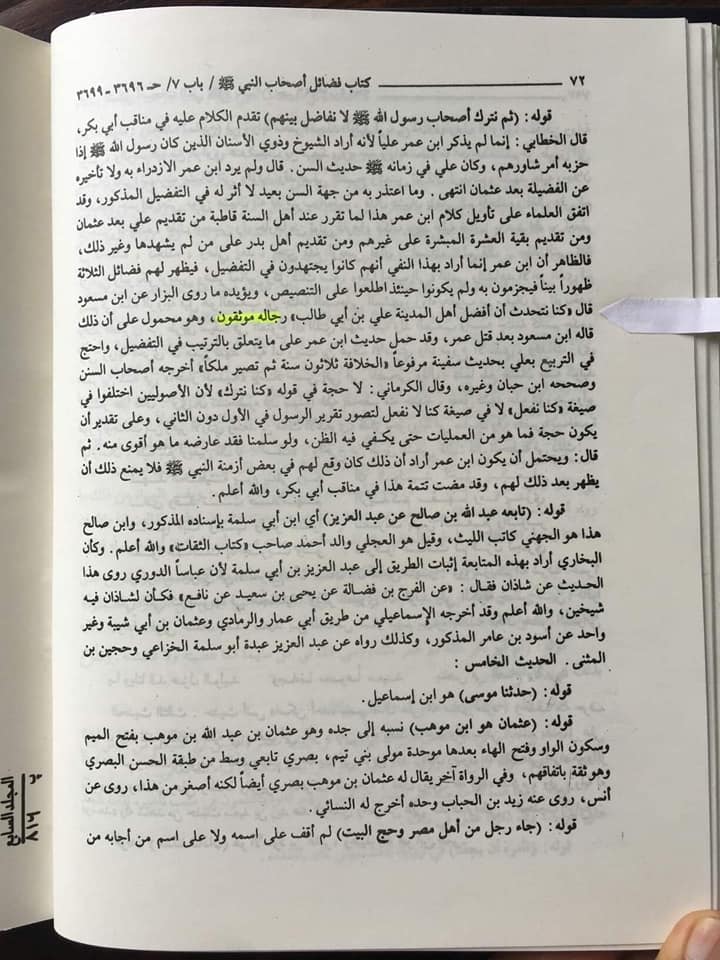 ٧٢ ـــــــ كتاب فضائل أصحاب النبي ﷺ / باب ٧/ حـ ٣٦٩٦ - ٣٦٩٩
قوله: (ثم نترك أصحاب رسول الله ﷺ لا نفاضل بينهم) تقدم الكلام عليه في مناقب أبي بكر،
قال الخطابي: إنما لم يذكر ابن عمر علياً لأنه أراد الشيوخ وذوي الأسنان الذين كان رسول الله ﷺ إذا
حزبه أمر شاورهم، وكان علي في زمانه ﷺ حديث السن. قال ولم يرد ابن عمر الازدراء به ولا تأخيره
عن الفضيلة بعد عثمان انتهى. وما اعتذر به من جهة السن بعيد لا أثر له في التفضيل المذكور، وقد
اتفق العلماء على تأويل كلام ابن عمر هذا لما تقرر عند أهل السنة قاطبة من تقديم علي بعد عثمان
ومن تقديم بقية العشرة المبشرة على غيرهم ومن تقديم أهل بدر على من لم يشهدها وغير ذلك،
فالظاهر أن ابن عمر إنما أراد بهذا النفي أنهم كانوا يجتهدون في التفضيل، فيظهر لهم فضائل الثلاثة
ظهوراً بيناً فيجزمون به ولم يكونوا حينئذ اطلعوا على التنصيص، ويؤيده ما روى البزار عن ابن مسعود
قال «كنا نتحدث أن أفضل أهل المدينة علي بن أبي طالب» رجاله موثقون، وهو محمول على أن ذلك
قاله ابن مسعود بعد قتل عمر، وقد حمل حديث ابن عمر على ما يتعلق بالترتيب في التفضيل، واحتج
في التربيع بعلي بحديث سفينة مرفوعاً «الخلافة ثلاثون سنة ثم تصير ملكاً» أخرجه أصحاب السنن
وصححه ابن حبان وغيره، وقال الكرماني: لا حجة في قوله «كنا نترك» لأن الأصوليين اختلفوا في
صيغة «كنا نفعل» لا في صيغة كنا لا نفعل لتصور تقرير الرسول في الأول دون الثاني، وعلى تقدير أن
يكون حجة فما هو من العمليات حتى يكفي فيه الظن، ولو سلمنا فقد عارضه ما هو أقوى منه. ثم
قال: ويحتمل أن يكون ابن عمر أراد أن ذلك كان وقع لهم في بعض أزمنة النبي ﷺ فلا يمنع ذلك أن
يظهر بعد ذلك لهم، وقد مضت تتمة هذا في مناقب أبي بكر، والله أعلم.
قوله: (تابعه عبد الله بن صالح عن عبد العزيز) أي ابن أبي سلمة بإسناده المذكور، وابن صالح
هذا هو الجهني كاتب الليث، وقيل هو العجلي والد أحمد صاحب «كتاب الثقات» والله أعلم. وكأن
البخاري أراد بهذه المتابعة إثبات الطريق إلى عبد العزيز بن أبي سلمة لأن عباساً الدوري روى هذا
الحديث عن شاذان فقال: «عن الفرج بن فضالة عن يحيى بن سعيد عن نافع» فكأن لشاذان فيه
شيخين، والله أعلم وقد أخرجه الإسماعيلي من طريق أبي عمار والرمادي وعثمان بن أبي شيبة وغير
واحد عن أسود بن عامر المذكور، وكذلك رواه عن عبد العزيز عبدة أبو سلمة الخزاعي وحجين بن
المثنى. الحديث الخامس:
قوله: (حدثنا موسى) هو ابن إسماعيل.
قوله: (عثمان هو ابن موهب) نسبه إلى جده وهو عثمان بن عبد الله بن موهب بفتح الميم
وسكون الواو وفتح الهاء بعدها موحدة مولى بني تيم، بصري تابعي وسط من طبقة الحسن البصري
وهو ثقة باتفاقهم، وفي الرواة آخر يقال له عثمان بن موهب بصري أيضاً لكنه أصغر من هذا، روى عن
أنس، روى عنه زيد بن الحباب وحده أخرج له النسائي.
قوله: (جاء رجل من أهل مصر وحج البيت) لم أقف على اسمه ولا على اسم من أجابه من
المجلد السابع